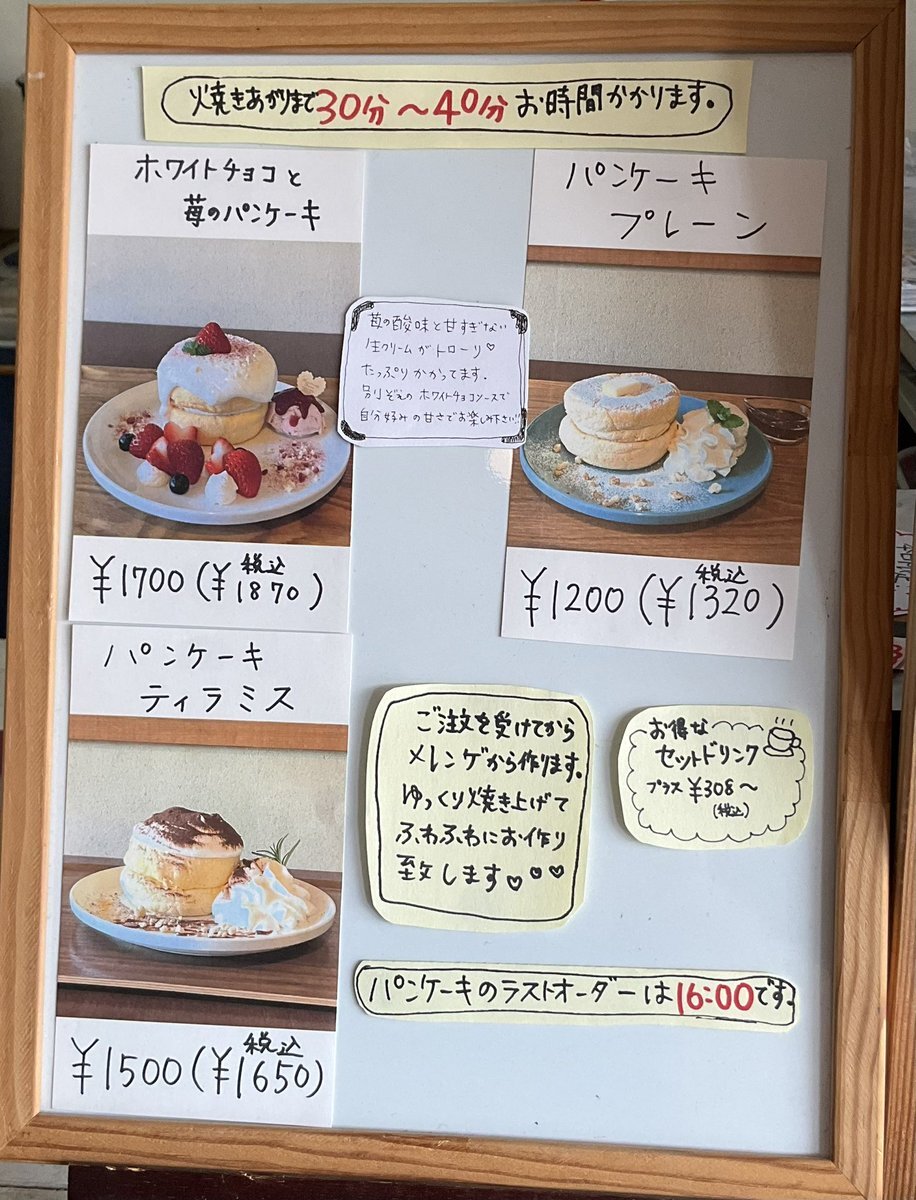 焼きあがりまで30分〜40分お時間かかります。
ホワイトチョコと
苺のパンケーキ
苺の酸味と甘すぎない
生クリームがトローリ♡
たっぷりかかってます。
別ぞえのホワイトチョコソースで
自分好みの甘さでお楽しみ下さい!!
¥1700(税込¥1870)
パンケーキ
プレーン
¥1200(税込¥1320)
パンケーキ
ティラミス
¥1500(税込¥1650)
ご注文を受けてから
メレンゲから作ります。
ゆっくり焼き上げて
ふわふわにお作り
致します♡♡♡
お得な
セットドリンク
プラス¥308〜
(税込)
パンケーキのラストオーダーは16:00です。